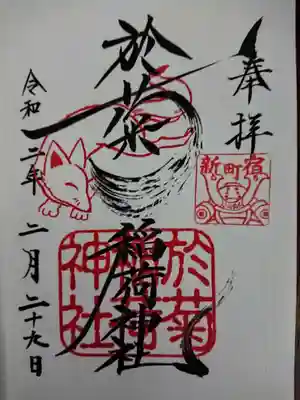 奉拝
新町宿
於菊
稲荷神社
於菊稲荷神社
令和二年二月二十九日